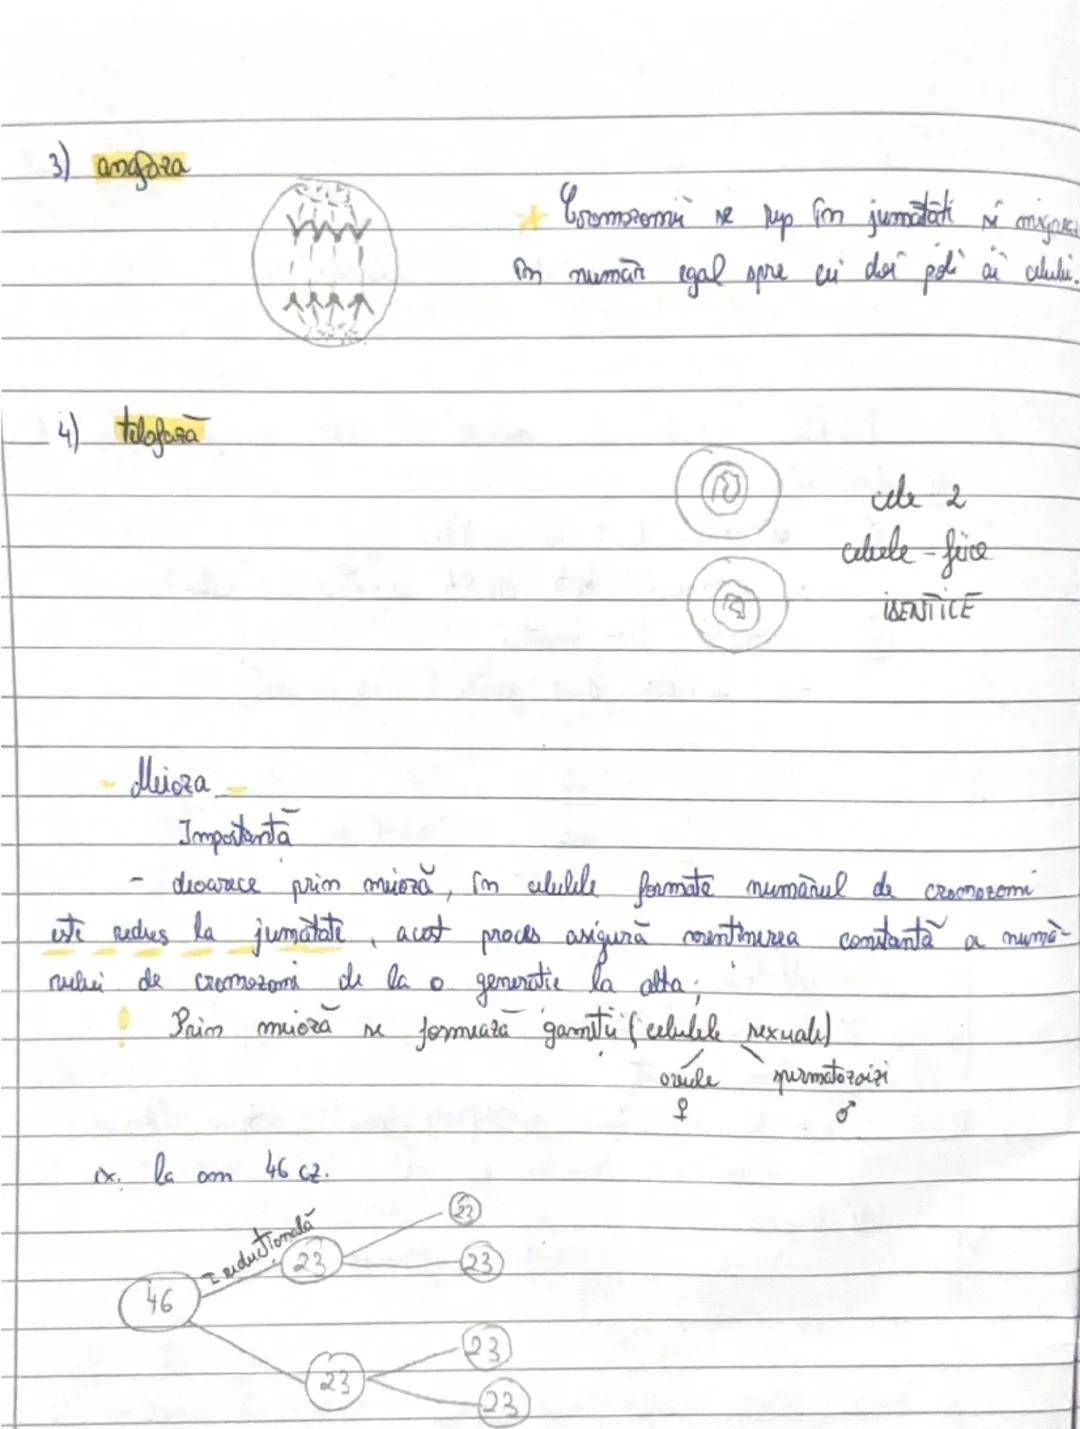 3) anafaza
* Cromozomii se rup în jumătăți și migrează
în număr egal spre cei doi poli ai celulei.
4) telofază
cele 2
celule-fiice
IDENTICE
- Meioza -
Importanță
- deoarece prin meioză, în celulele formate numărul de cromozomi
este redus la jumătate, acest proces asigură menținerea constantă a numă-
rului de cromozomi de la o generație la alta;
! Prin meioză se formează gameții (celulele sexuale)
ovule spermatozoizi
♀ ♂
ex. la om 46 cz.
I reducțională
23
23
23
46
23
23
23